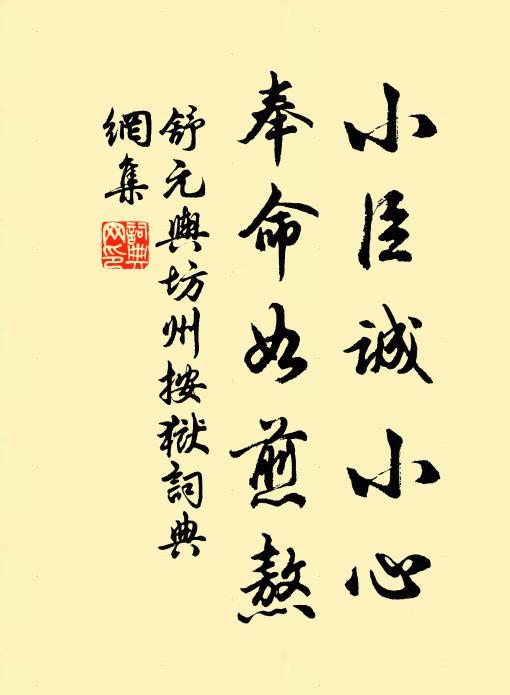 小臣誠小心
奉命如煎熬
舒元輿坊州按獄詞典
網集
詞典
网印